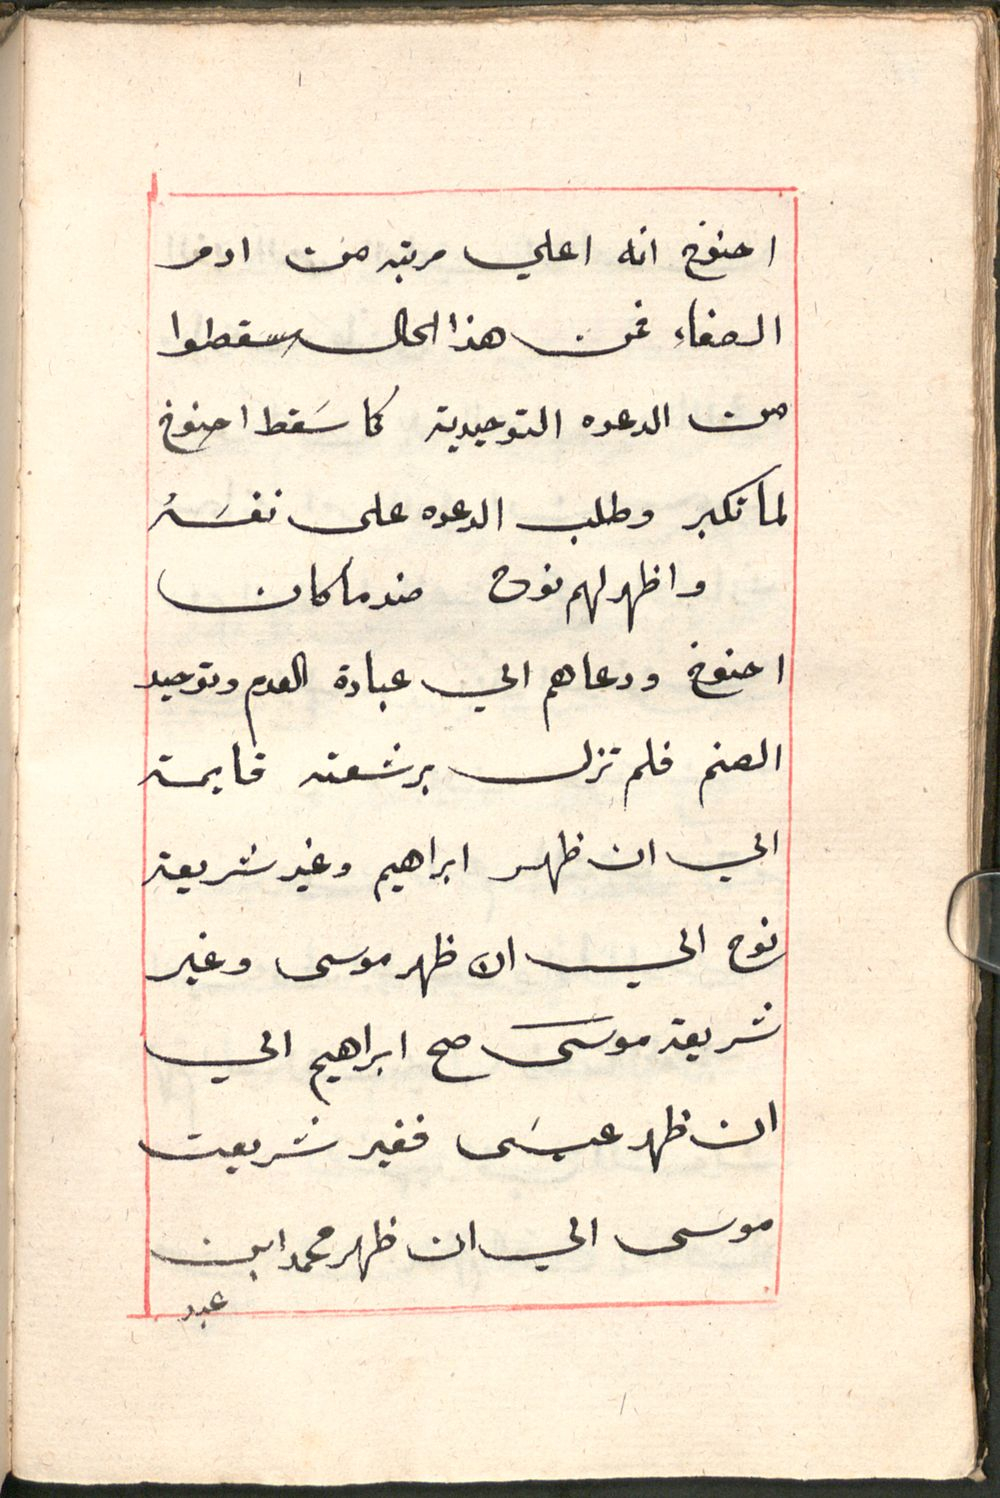 احنوخ انه اعلي مرتبه من ادم
الصفاء فمن هذا الحال سقطوا
من الدعوه التوحيدية كما سَقط احنوخ
لما تكبر وطلب الدعوه على نفسَهُ
واظهر لهم نوح ضد ما كان
احنوخ ودعاهم الي عبادة العدم وتوحيد
الصنم فلم تزل برشعته قايمة
الي ان ظهر ابراهيم وغير شريعة
نوح الي ان ظهر موسى وغير
شريعة موسَى صح ابراهيم الي
ان ظهر عيسَى فغير شريعت
موسى الي ان ظهر محمد ابن
عبد